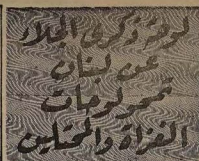 لوحة ذكرى الجلاء
عن لبنان
تمحو لوحات
الغزاة والمحتلين